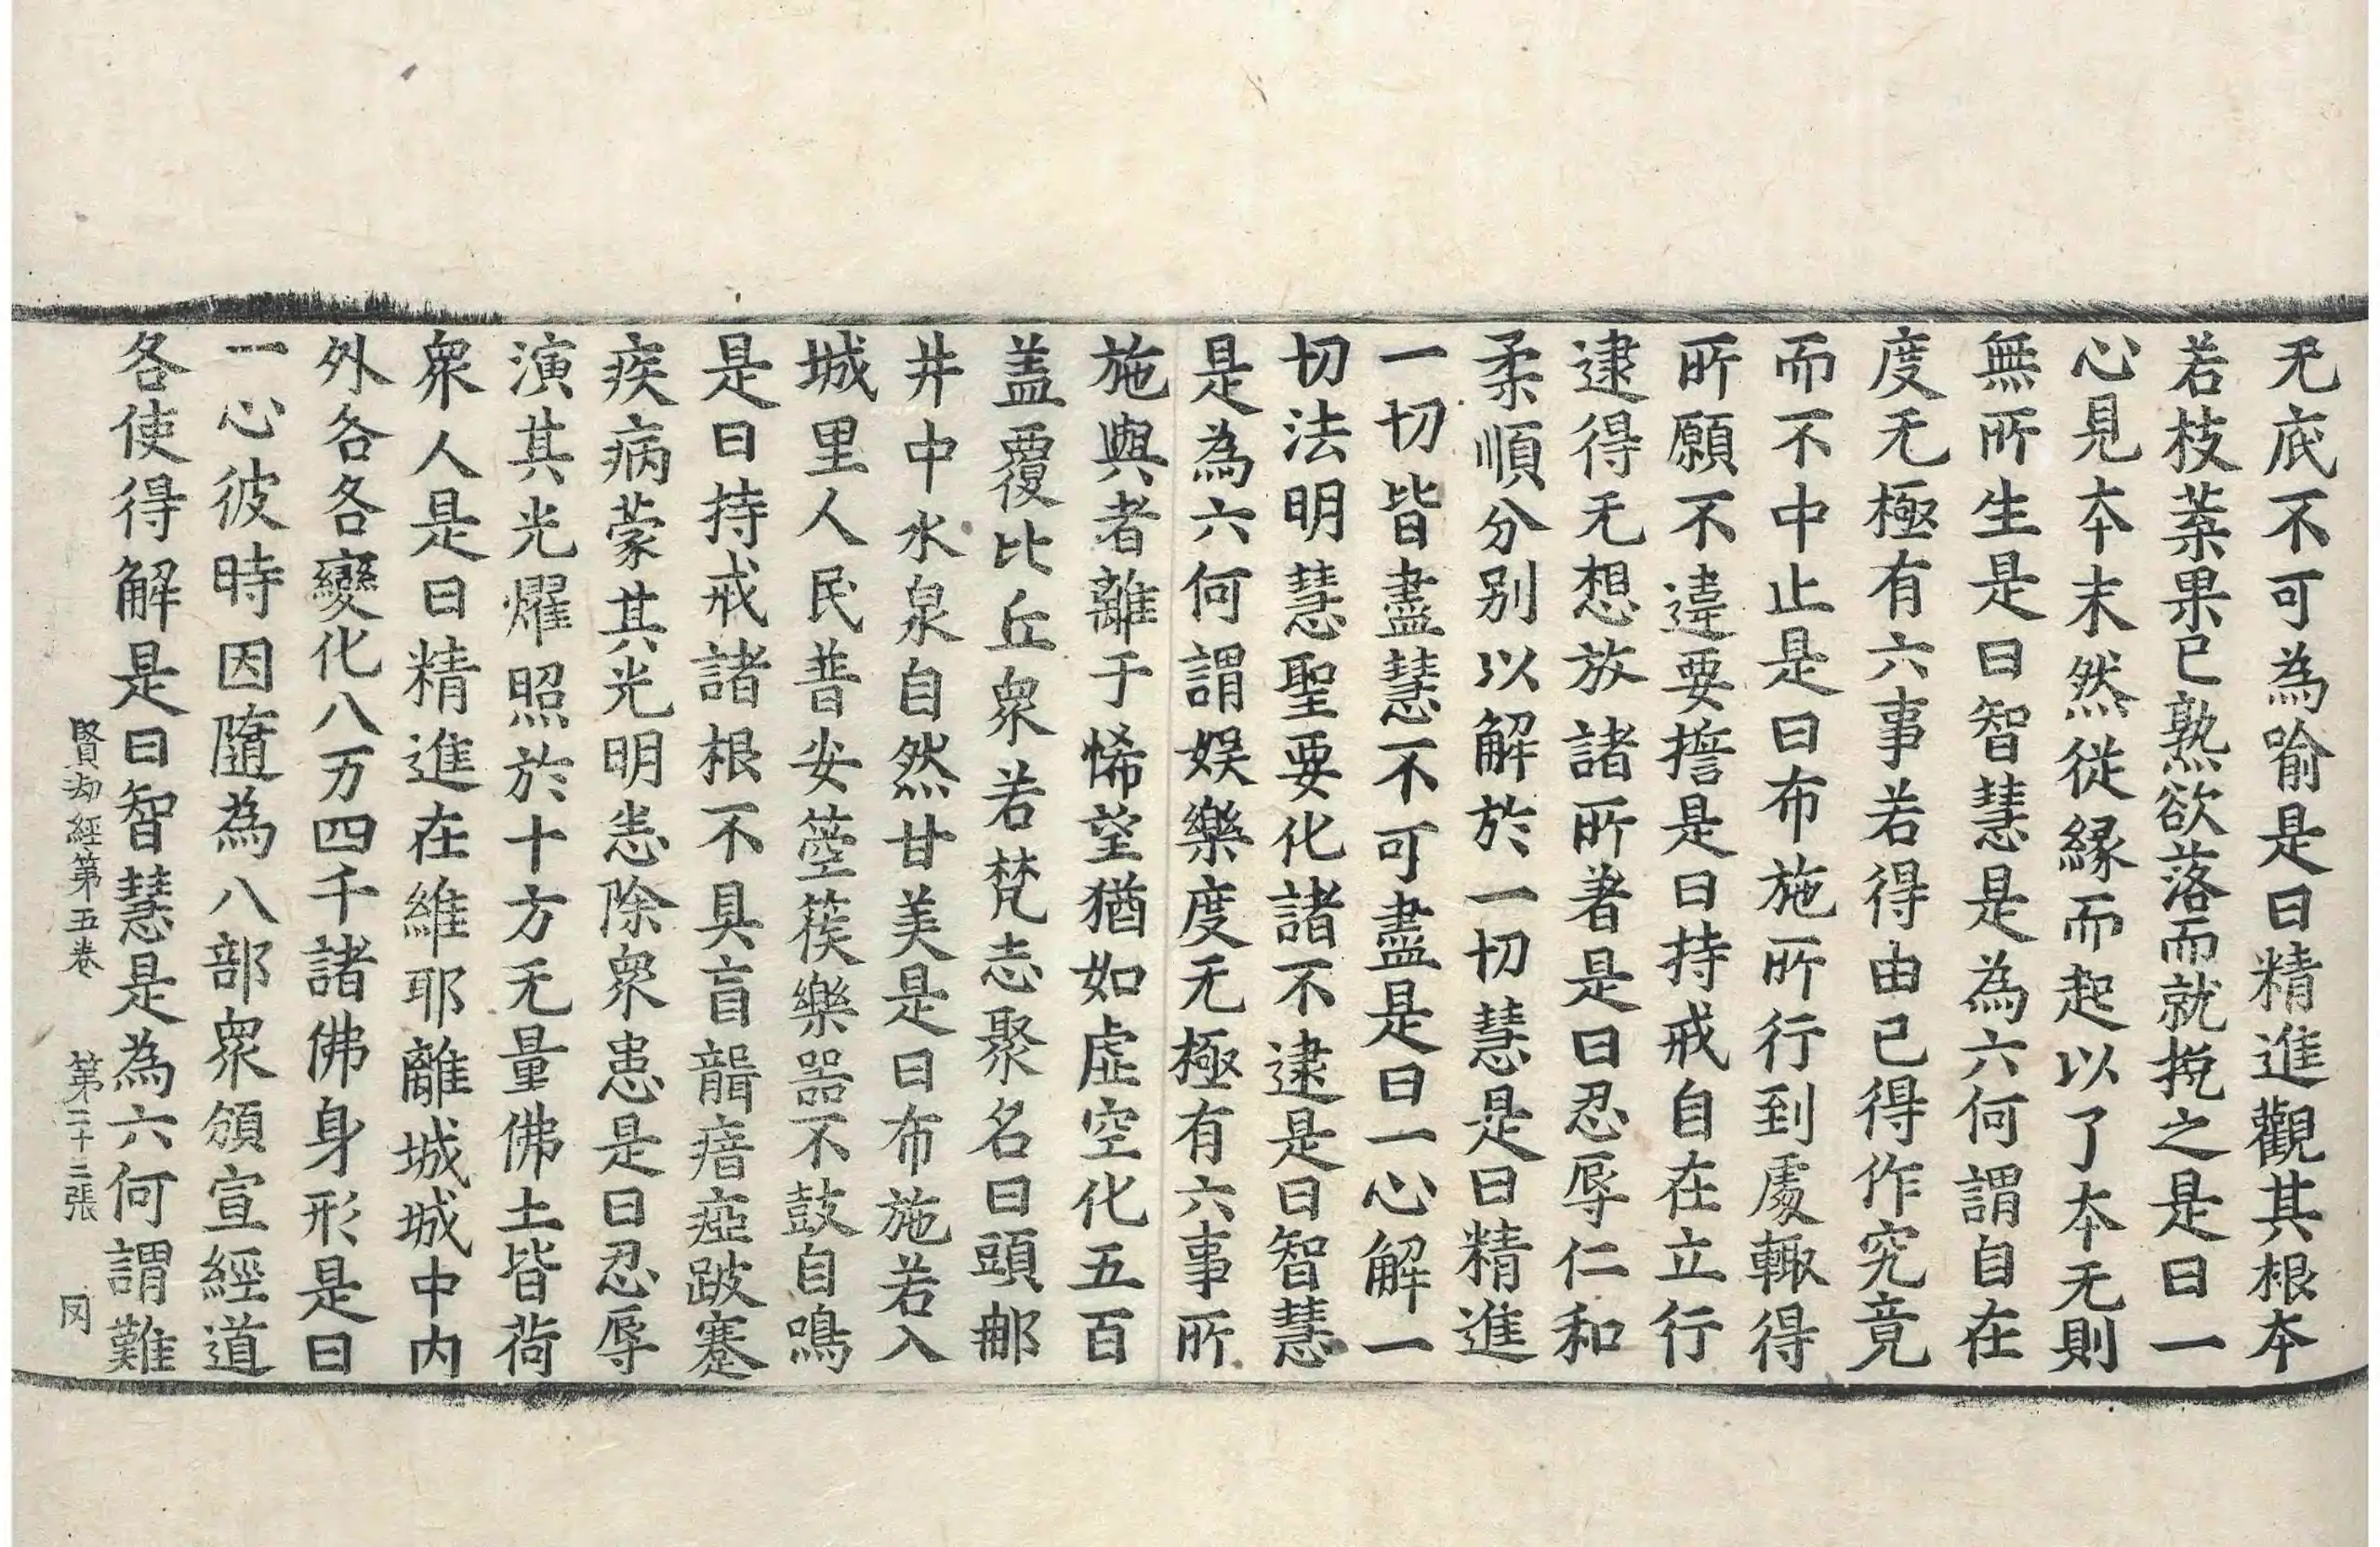 无底不可為喻是曰精進觀其根本
若枝葉果已熟欲落而就挽之是曰一
心見本末然從緣而起以了本无則
無所生是曰智慧是為六何謂自在
度无極有六事若得由己得作究竟
而不中止是曰布施所行到處輙得
所願不違要擔是曰持戒自在立行
逮得无想放諸所著是曰忍辱仁和
柔順分别以解於一切慧是曰精進
一切皆盡慧不可盡是曰一心解一
切法明慧聖要化諸不逮是曰智慧
是為六何謂娛樂度无極有六事所
施與者離于悕望猶如虛空化五百
盖覆比丘衆若梵志聚名曰頭𨚗
井中水泉自然甘美是曰布施若入
城里人民普安箜篌樂器不鼓自鳴
是曰持戒諸根不具盲聾瘖瘂跛蹇
疾病蒙其光明恙除衆患是曰忍辱
演其光燿照於十方无量佛土皆荷
衆人是曰精進在維耶離城城中内
外各各變化八万四千諸佛身形是曰
一心彼時因隨為八部衆頒宣經道
各使得解是曰智慧是為六何謂難
賢劫經第五卷 第二十二張 罔